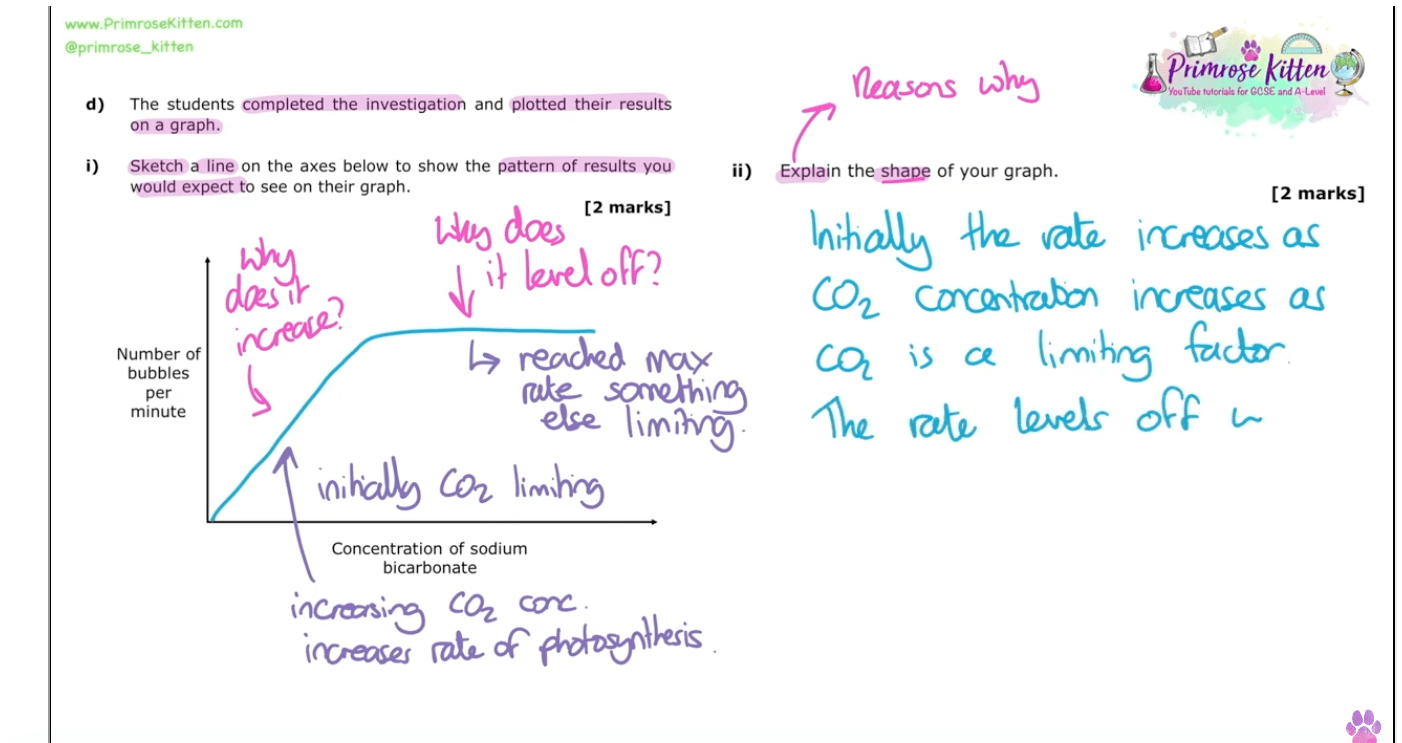 www.PrimroseKitten.com
@primrose_kitten
Primrose Kitten
YouTube tutorials for GCSE and A-Level
d) The students completed the investigation and plotted their results
on a graph.
i) Sketch a line on the axes below to show the pattern of results you
would expect to see on their graph.
[2 marks]
Why
does it
increase?
Why does
it level off?
Number of
bubbles
per
minute
↳ reached max
rate something
else limiting.
initially CO₂ limiting
Concentration of sodium
bicarbonate
increasing CO₂ conc.
increases rate of photosynthesis.
Reasons why
ii) Explain the shape of your graph.
[2 marks]
Initially the rate increases as
CO₂ concentration increases as
CO₂ is a limiting factor.
The rate levels off